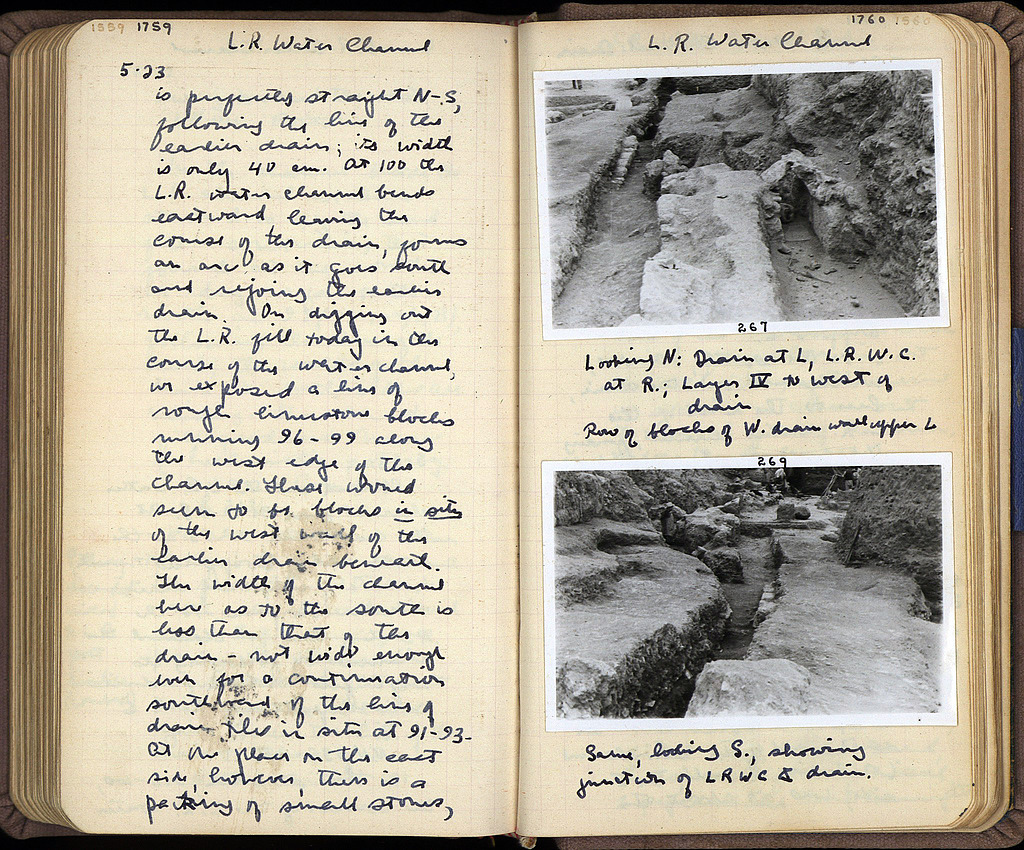 1559 1759
L.R. Water Channel
5-23
is perfectly straight N-S,
following the line of the
earlier drain; its width
is only 40 cm. At 100 the
L.R. water channel bends
eastward, leaving the
course of the drain, forms
an arc as it goes south
and rejoins the earlier
drain. On digging out
the L.R. fill today in the
course of the water channel,
we exposed a line of
rough limestone blocks
running 96-99 along
the west edge of the
channel. These would
seem to be blocks in situ
of the west wall of the
earlier drain beneath.
The width of the channel
here as to the south is
less than that of the
drain - not wide enough
even for a continuation
southward of the line of
drain tiles in situ at 91-93.
At one place on the east
side, however, there is a
packing of small stones,
1760 1560
L. R. Water Channel
267
Looking N: Drain at L, L.R.W.C.
at R.; Layer IV to west of
drain
Row of blocks of W. drain wall upper L
269
Same, looking S., showing
junction of LRWC & drain.